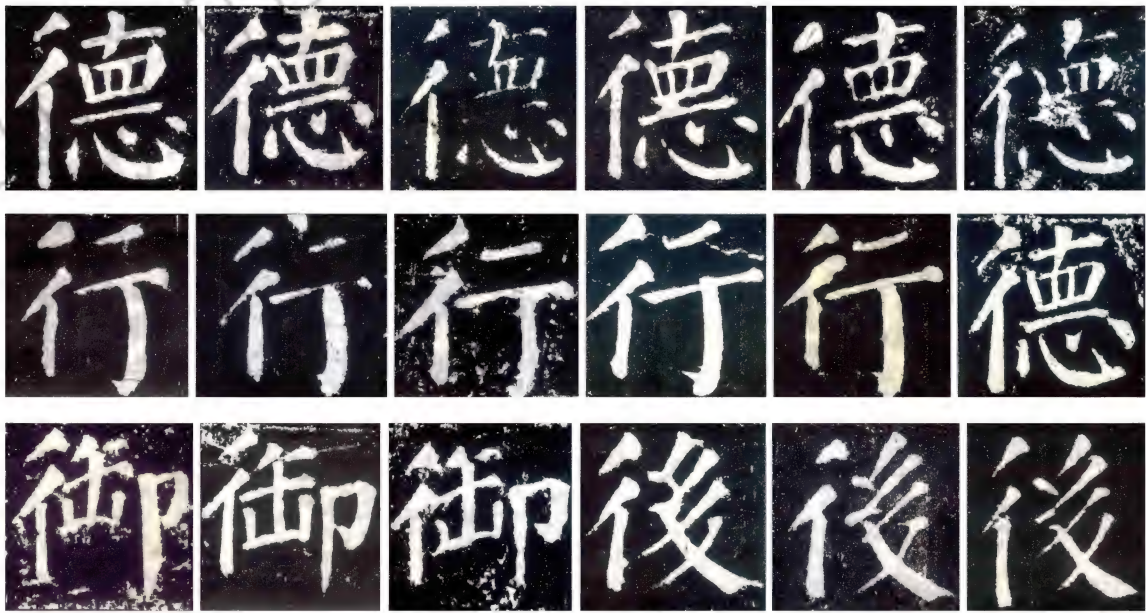 德德德德德德
行行行行行德
御御御後後後